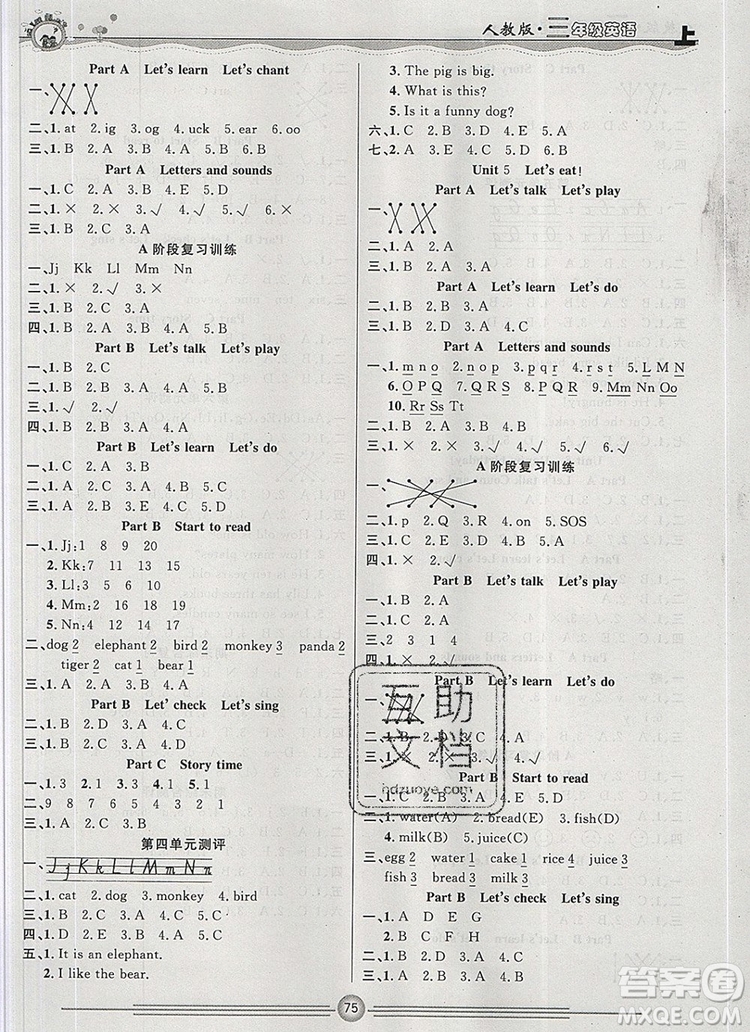 人教版·三年级英语 上
Part A Let's learn Let's chant
一、
二、1. at 2. ig 3. og 4. uck 5. ear 6. oo
三、1. B 2. A 3. A 4. B 5. B 6. B
Part A Letters and sounds
一、1. C 2. A 3. B 4. E 5. D
二、1. × 2. × 3. √ 4. √ 5. √
三、1. B 2. A
A 阶段复习训练
一、Jj Kk Ll Mm Nn
二、1. × 2. √
三、1. B 2. C 3. A
四、1. B 2. A 3. A 4. A 5. B
Part B Let's talk Let's play
一、1. B 2. C
二、1. B 2. A
三、1. √ 2. ×
四、1. A 2. B 3. B 4. B
Part B Let's learn Let's do
一、1. C 2. A 3. B
二、1. B 2. A 3. A 4. A 5. B
三、1. D 2. A 3. B 4. C
Part B Start to read
一、1. Jj:1 8 9 20
2. Kk:7 11 13
3. Ll:3 5 10 14
4. Mm:2 16 18 19
5. Nn:4 12 15 17
二、dog 2 elephant 2 bird 2 monkey 3 panda 2
tiger 2 cat 1 bear 1
三、1. B 2. C 3. A 4. A 5. C
Part B Let' check Let's sing
一、1. B 2. D 3. A 4. C
二、1. A 2. B 3. B 4. C
Part C Story time
一、1. 3 2. 1 3. 3 4. 1 5. 1
二、9 8 7 6 5 4 3 2 1
三、1. B 2. A 3. A 4. A 5. B
第四单元测评
一、Jj Kk Ll Mm Nn
二、1. cat 2. dog 3. monkey 4. bird
三、1. B 2. C 3. A 4. C 5. B
四、1. D 2. A 3. B 4. C
五、1. It is an elephant.
2. I like the bear.
3. The pig is big.
4. What is this?
5. Is it a funny dog?
六、1. C 2. B 3. D 4. E 5. A
七、2. A 3. A 4. B 5. B
Unit 5 Let's eat!
Part A Let's talk Let's play
一、
二、1. A 2. A
三、1. B 2. A
Part A Let's learn Let's do
一、1. B 2. C 3. A 4. D
二、1. B 2. A 3. C
Part A Letters and sounds
一、1. m n o 2. n o p 3. p q r 4. r s t 5. L M N
6. O P Q 7. P Q R 8. Q R S 9. Mm Nn Oo
10. Rr Ss Tt
二、1. A 2. B 3. B 4. B
三、1. × 2. √ 3. √ 4. √ 5. √ 6. √
A 阶段复习训练
一、
二、1. p 2. Q 3. R 4. on 5. SOS
三、1. C 2. B 3. A 4. D 5. E
四、1. × 2. √
Part B Let's talk Let's play
一、1. B 2. A
二、1. B 2. A
三、2 3 1 4
四、1. × 2. √
Part B Let's learn Let's do
一、
二、1. B 2. D 3. A 4. C
三、1. × 2. × 3. √ 4. √ 5. √
Part B Start to read
一、1. C 2. B 3. A 4. E 5. D
二、1. water(A) 2. bread(E) 3. fish(D)
4. milk(B) 5. juice(C)
三、egg 2 water 1 cake 1 rice 4 juice 3
fish 3 bread 3 milk 3
Part B Let's check Let's sing
一、1. A D E G
2. B C F H
二、1. A 2. B 3. B 4. A
三、1. B 2. A 3. D 4. C
75
互助文档
hdzuoye.com
答案圈
MXQE.COM